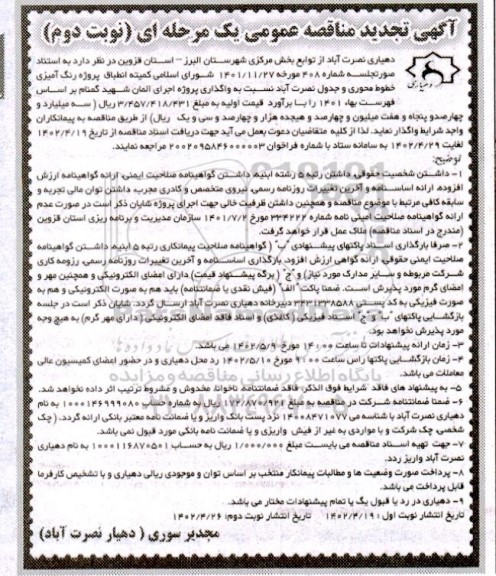 آگهی تجدید مناقصه عمومی یک مرحله ای (نوبت دوم)
دهیاری نصرت آباد از توابع بخش مرکزی شهرستان البرز – استان قزوین در نظر دارد به استناد
صورتجلسه شماره ۴۰۸ مورخه ۱۴۰۱/۱۱/۲۷ شورای اسلامی کمیته انطباق پروژه رنگ آمیزی
خطوط محوری و جدول نصرت آباد نسبت به واگذاری پروژه اجرای المان شهید گمنام بر اساس
فهرست بهاء ۱۴۰۱ را با برآورد قیمت اولیه به مبلغ ۳/۴۵۷/۴۱۸/۴۳۱ ریال ( سه میلیارد و
چهارصدو پنجاه و هفت میلیون و چهارصد و هیجده هزار و چهارصد و سی و یک ریال) از طریق مناقصه به پیمانکاران
واجد شرایط واگذار نماید. لذا از کلیه متقاضیان دعوت بعمل می آید جهت دریافت اسناد مناقصه از تاریخ ۱۴۰۲/۴/۱۹
لغایت ۱۴۰۲/۴/۲۹ به سامانه ستاد با شماره فراخوان ۲۰۰۲۰۹۵۸۴۶۰۰۰۰۰۳ مراجعه نمایند.
توضیح:
۱- داشتن شخصیت حقوقی، داشتن رتبه ۵ رشته ابنیه، داشتن گواهینامه صلاحیت ایمنی، ارائه گواهینامه ارزش
افزوده، ارائه اساسنامه و آخرین تغییرات روزنامه رسمی، نیروی متخصص و کادری مجرب، داشتن توان مالی تجربه و
سابقه کافی مرتبط با موضوع مناقصه و همچنین داشتن ظرفیت خالی جهت اجرای پروژه شایان ذکر است در صورت عدم
ارائه گواهینامه صلاحیت ایمنی نامه شماره ۳۳۴۲۲۲ مورخ ۱۴۰۱/۷/۲ سازمان مدیریت و برنامه ریزی استان قزوین
(مندرج در اسناد مناقصه) ملاک عمل قرار خواهد گرفت.
۲- صرفا بارگذاری اسناد پاکتهای پیشنهادی "ب" ( گواهینامه صلاحیت پیمانکاری رتبه ۵ ابنیه، داشتن گواهینامه
صلاحیت ایمنی حقوقی، ارائه گواهی ارزش افزود، بارگذاری اساسنامه و آخرین تغییرات روزنامه رسمی، رزومه کاری
شرکت مربوطه و سایر مدارک مورد نیاز) و "ج" ( برگه پیشنهاد قیمت) دارای امضای الکترونیکی و همچنین مهر و
امضای گرم مورد پذیرش است. ضمنا پاکت "الف" (فیش نقدی یا ضمانتنامه) باید هم به صورت الکترونیکی و هم به
صورت فیزیکی به کد پستی ۳۴۳۱۳۳۸۵۸۸ دبیرخانه دهیاری نصرت آباد ارسال گردد. شایان ذکر است در جلسه
بازگشایی پاکتهای "ب" و "ج" اسناد فیزیکی ( کاغذی) و اسناد فاقد امضای الکترونیکی (دارای مهر گرم) به هیچ وجه
مورد پذیرش نخواهد بود.
۳- زمان ارائه پیشنهادات تا ساعت ۱۴:۰۰ مورخ ۱۴۰۲/۵/۹ می باشد.
۴- زمان بازگشایی پاکتها راس ساعت ۹:۰۰ مورخ ۱۴۰۲/۵/۱۰ رد محل دهیاری و در حضور اعضای کمیسیون عالی
معاملات می باشد.
۵- به پیشنهاد های فاقد شرایط فوق الذکر، فاقد ضمانتنامه ناخوانا، مخدوش و مشروط ترتیب اثر داده نخواهد شد.
۶- ضمنا ضمانتنامه شرکت در مناقصه به مبلغ ریال به شماره حساب ۱۰۰۰۱۴۶۹۹۹۰۸۰ به نام
دهیاری نصرت آباد با شناسه می نزد پست بانک واریز و یا ضمانت نامه معتبر بانکی ارائه گردد. ( چک
شخصی، چک شرکت و یا مواردی به غیر از فیش واریزی و یا ضمانت نامه بانکی مورد قبول نمی باشد.
۷- جهت تهیه اسناد مناقصه می بایست مبلغ ۱/۰۰۰/۰۰۰ ریال به حساب ۱۰۰۰۱۱۶۸۷۰۵۰۱ به نام دهیاری
نصرت آباد واریز ردد.
۸- پرداخت صورت وضعیت ها و مطالبات پیمانکار منتخب بر اساس توان و موجودی ریالی دهیاری و با تشخیص کارفرما
قابل پرداخت می باشد.
۹- دهیاری در رد یا قبول یک یا تمام پیشنهادات مختار می باشد.
تاریخ انتشار نوبت اول : ۱۴۰۲/۴/۱۹ تاریخ انتشار نوبت دوم: ۱۴۰۲/۴/۲۶
مجدیر سوری ( دهیار نصرت آباد)